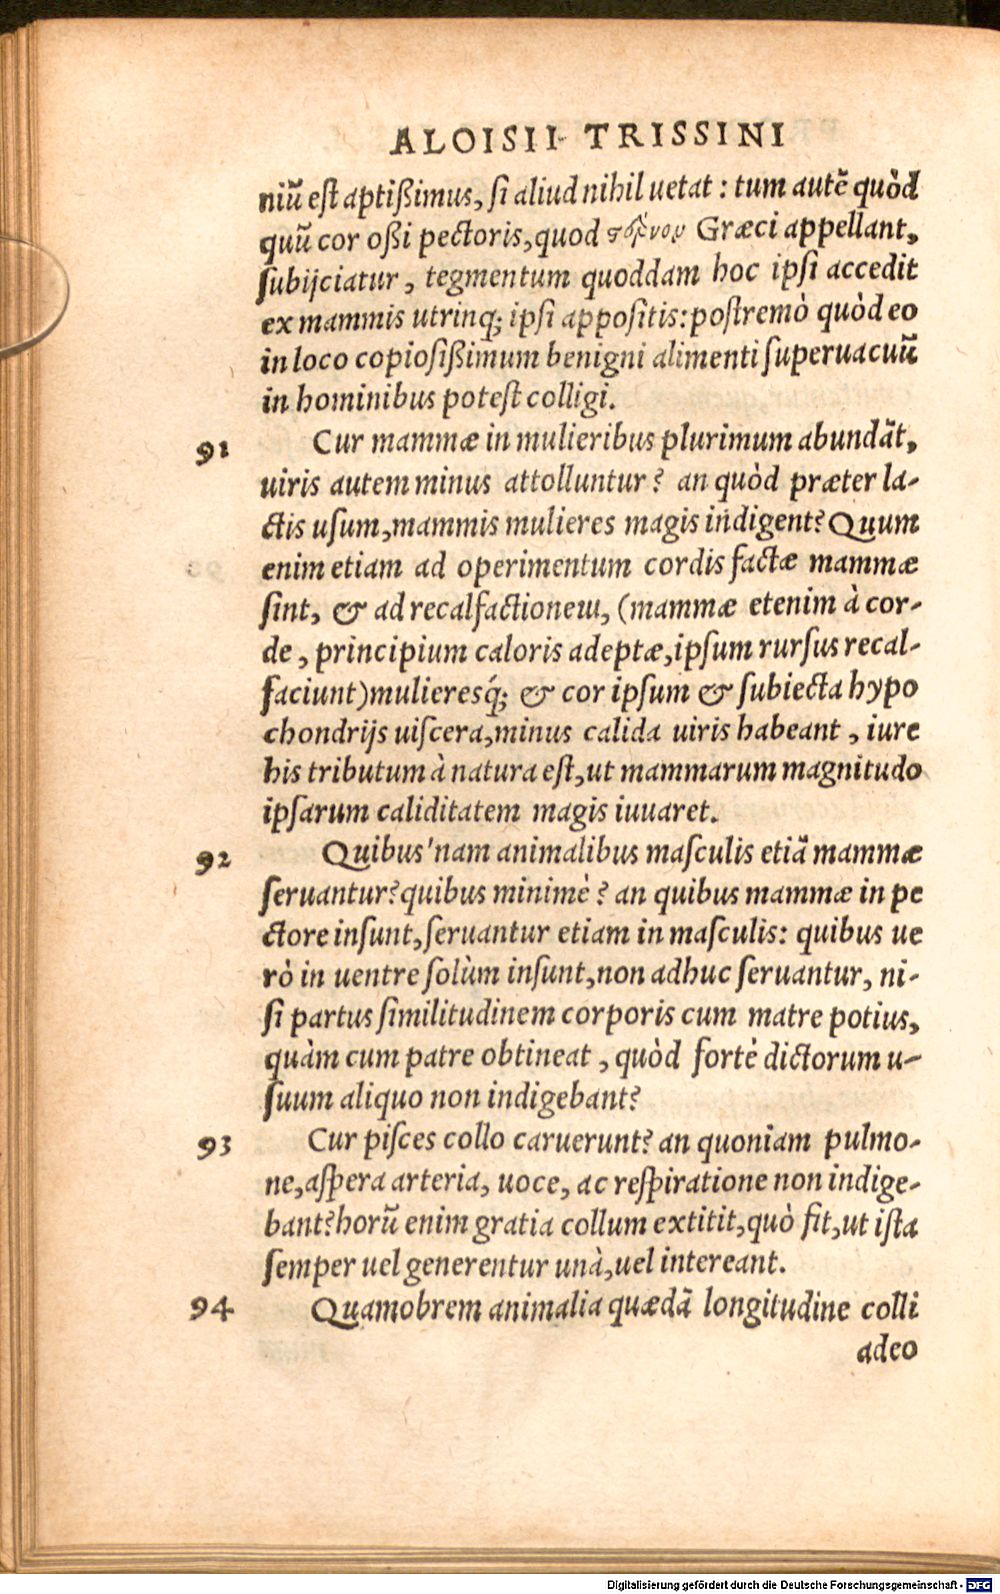 ALOISII TRISSINI
niū est aptißimus, si aliud nihil uetat : tum autē quòd
quū cor oßi pectoris, quod στέρνον Græci appellant,
subijciatur, tegmentum quoddam hoc ipsi accedit
ex mammis utrinq; ipsi appositis: postremò quòd eo
in loco copiosißimum benigni alimenti superuacuū
in hominibus potest colligi.
91 Cur mammæ in mulieribus plurimum abundāt,
uiris autem minus attolluntur? an quòd præter la-
ctis usum, mammis mulieres magis indigent? Quum
enim etiam ad operimentum cordis factæ mammæ
sint, & ad recalfactionem, (mammæ etenim à cor-
de, principium caloris adeptæ, ipsum rursus recal-
faciunt) mulieresq́; & cor ipsum & subiecta hypo
chondrijs uiscera, minus calida uiris habeant, iure
his tributum à natura est, ut mammarum magnitudo
ipsarum caliditatem magis iuuaret.
92 Quibus'nam animalibus masculis etiā mammæ
seruantur? quibus minimè? an quibus mammæ in pe
ctore insunt, seruantur etiam in masculis: quibus ue
rò in uentre solùm insunt, non adhuc seruantur, ni-
si partus similitudinem corporis cum matre potius,
quàm cum patre obtineat, quòd fortè dictorum u-
suum aliquo non indigebant?
93 Cur pisces collo caruerunt? an quoniam pulmo-
ne, aspera arteria, uoce, ac respiratione non indige-
bant? horū enim gratia collum extitit, quò fit, ut ista
semper uel generentur unà, uel intereant.
94 Quamobrem animalia quædā longitudine colli
adeo
Digitalisierung gefördert durch die Deutsche Forschungsgemeinschaft - DFG